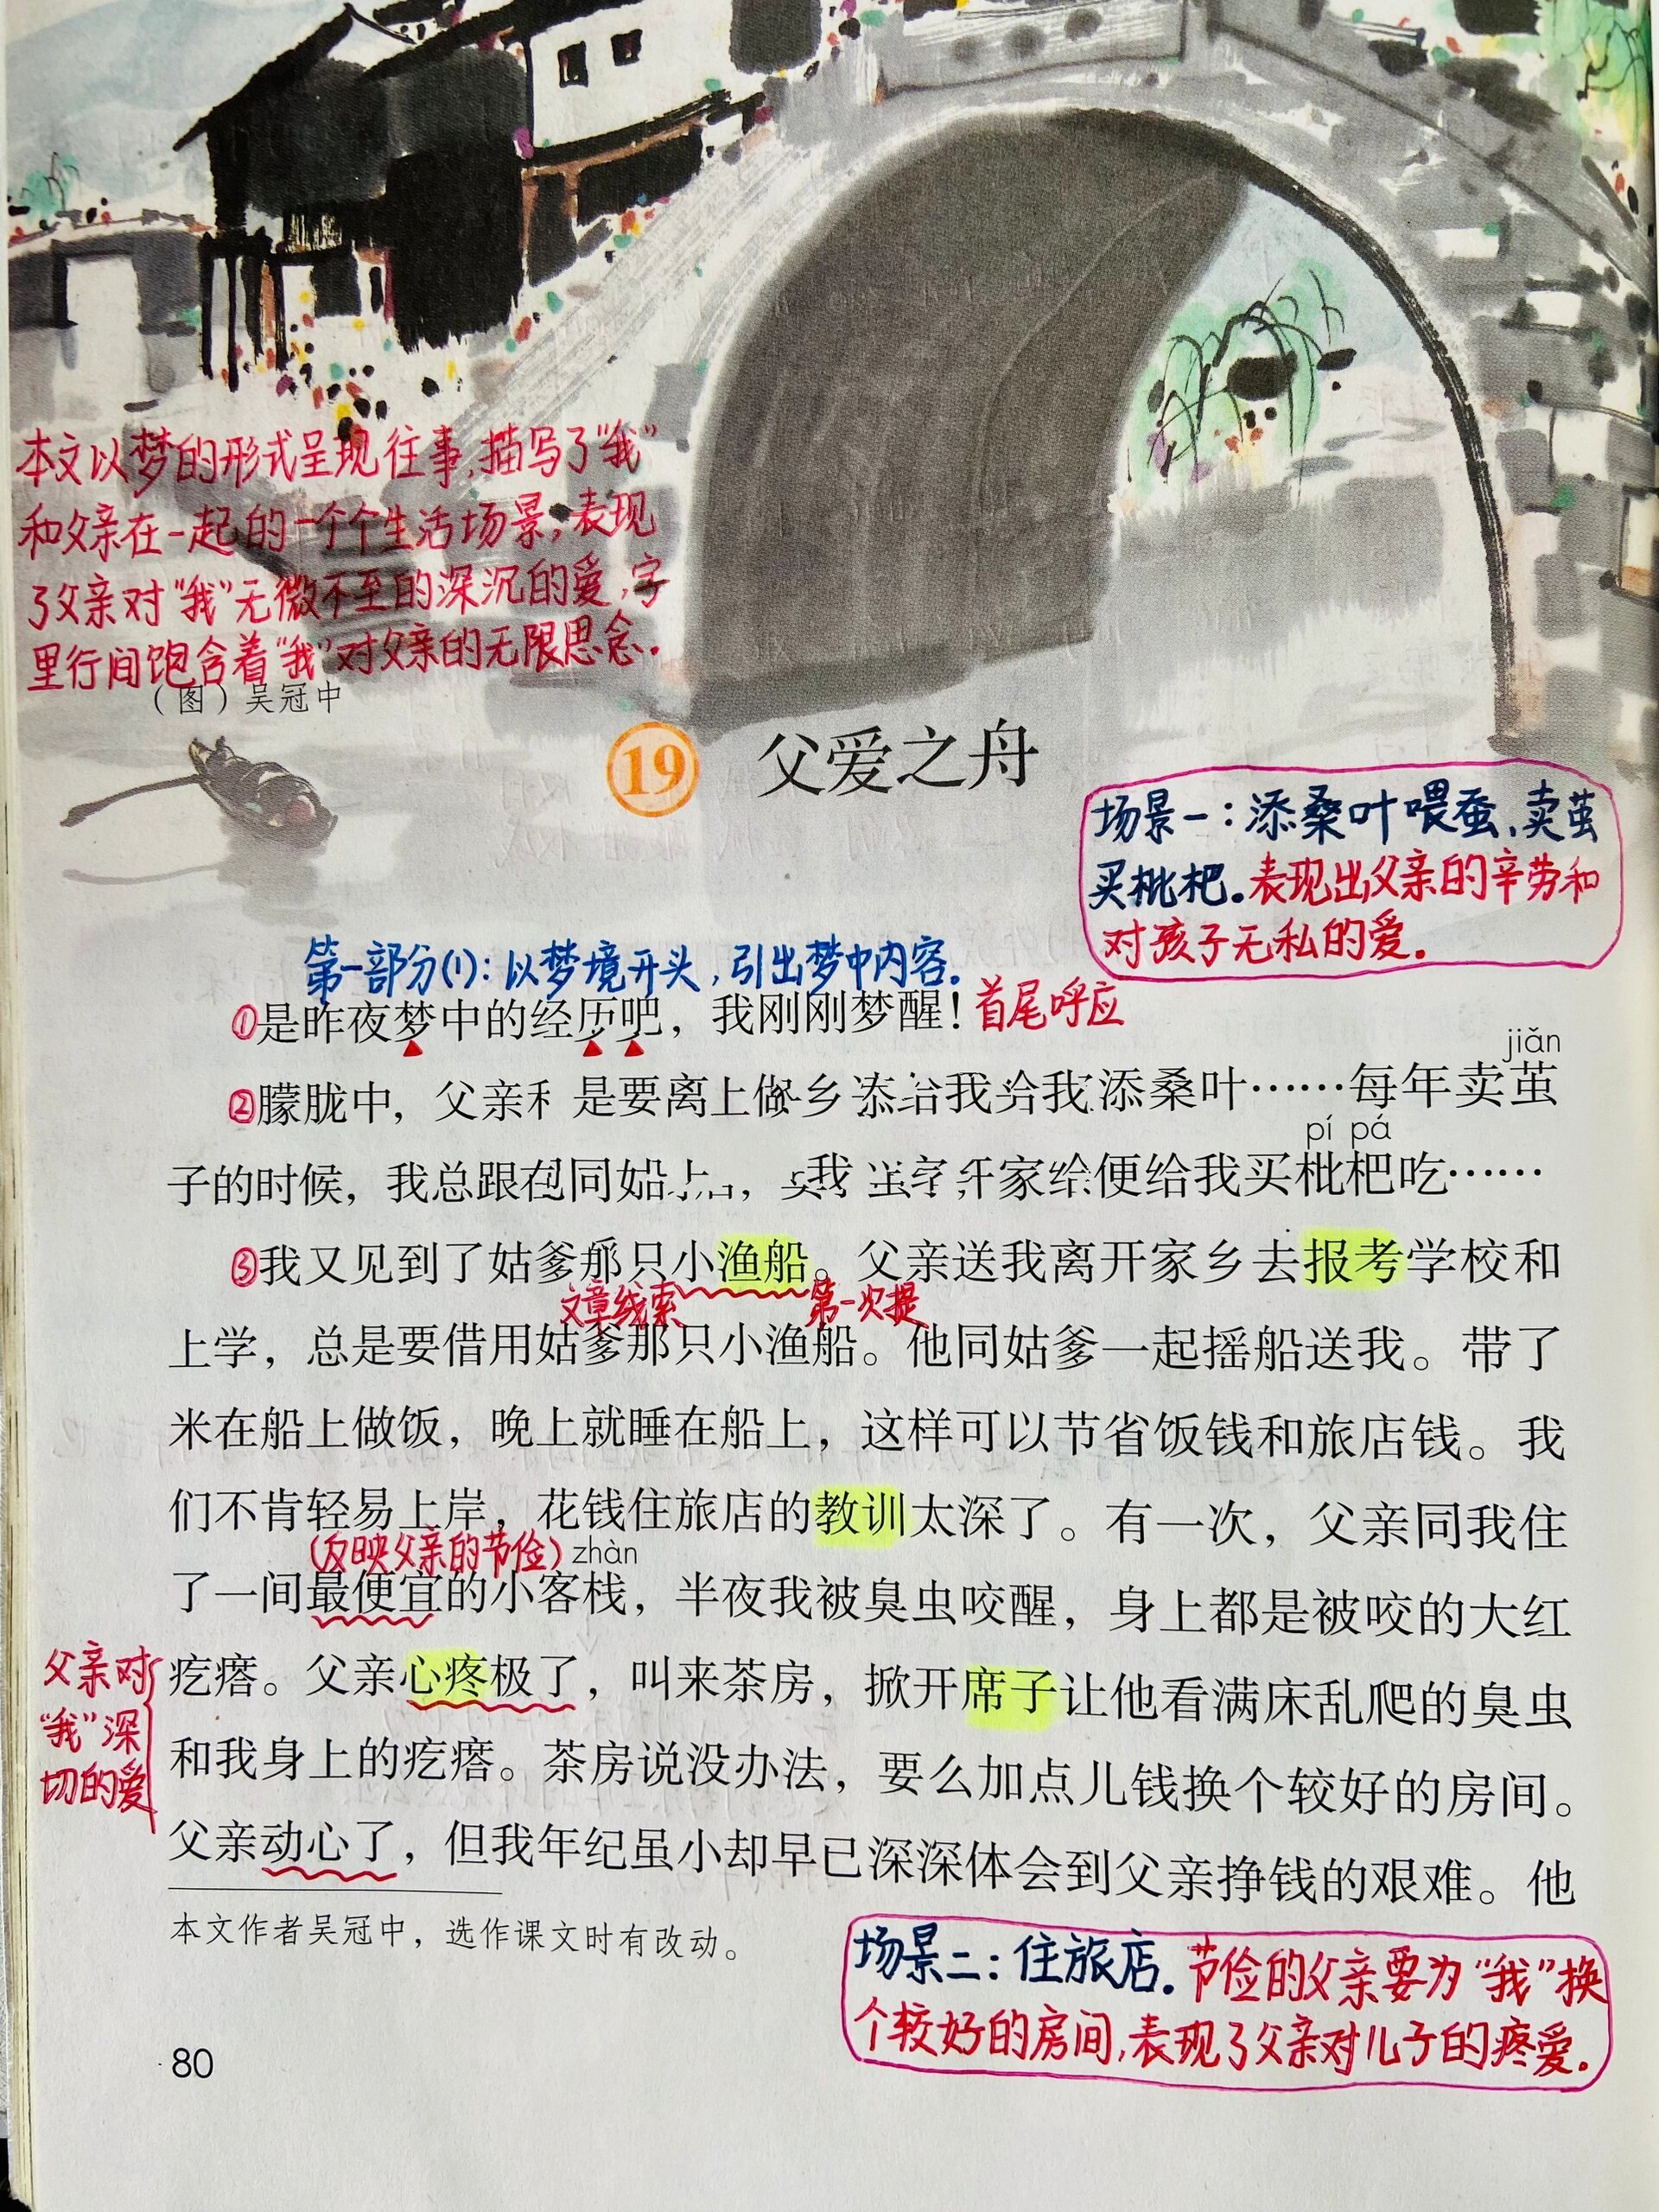 本文以梦的形式呈现往事，描写了“我”
和父亲在一起的一个个生活场景，表现
了父亲对“我”无微不至的深沉的爱，字
里行间饱含着“我”对父亲的无限思念。
（图）吴冠中
19 父爱之舟
场景一：添桑叶喂蚕、卖茧
买枇杷。表现出父亲的辛劳和
对孩子无私的爱。
第一部分(1)：以梦境开头，引出梦中内容。
①是昨夜梦中的经历吧，我刚刚梦醒！首尾呼应
jiǎn
②朦胧中，父亲 是要离上 乡 我 我添桑叶……每年卖茧
pí pá
子的时候，我总跟 同 ， 我 家 便给我买枇杷吃……
③我又见到了姑爹那只小渔船。父亲送我离开家乡去报考学校和
文章线索 第一次提
上学，总是要借用姑爹那只小渔船。他同姑爹一起摇船送我。带了
米在船上做饭，晚上就睡在船上，这样可以节省饭钱和旅店钱。我
们不肯轻易上岸，花钱住旅店的教训太深了。有一次，父亲同我住
(反映父亲的节俭) zhàn
了一间最便宜的小客栈，半夜我被臭虫咬醒，身上都是被咬的大红
疙瘩。父亲心疼极了，叫来茶房，掀开席子让他看满床乱爬的臭虫
和我身上的疙瘩。茶房说没办法，要么加点儿钱换个较好的房间。
父亲动心了，但我年纪虽小却早已深深体会到父亲挣钱的艰难。他
父亲对
“我”深
切的爱
本文作者吴冠中，选作课文时有改动。
场景二：住旅店。节俭的父亲要为“我”换
个较好的房间，表现了父亲对儿子的疼爱。
80